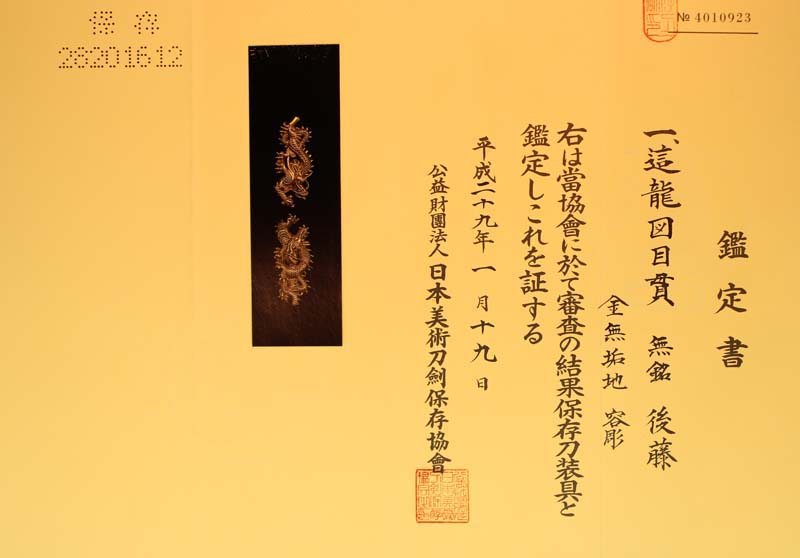 保存
28201612
№ 4010923
鑑定書
一、這龍図目貫 無銘 後藤
金無垢地 容彫
右は當協會に於て審査の結果保存刀装具と
鑑定しこれを証する
平成二十九年一月十九日
公益財團法人 日本美術刀劍保存協會